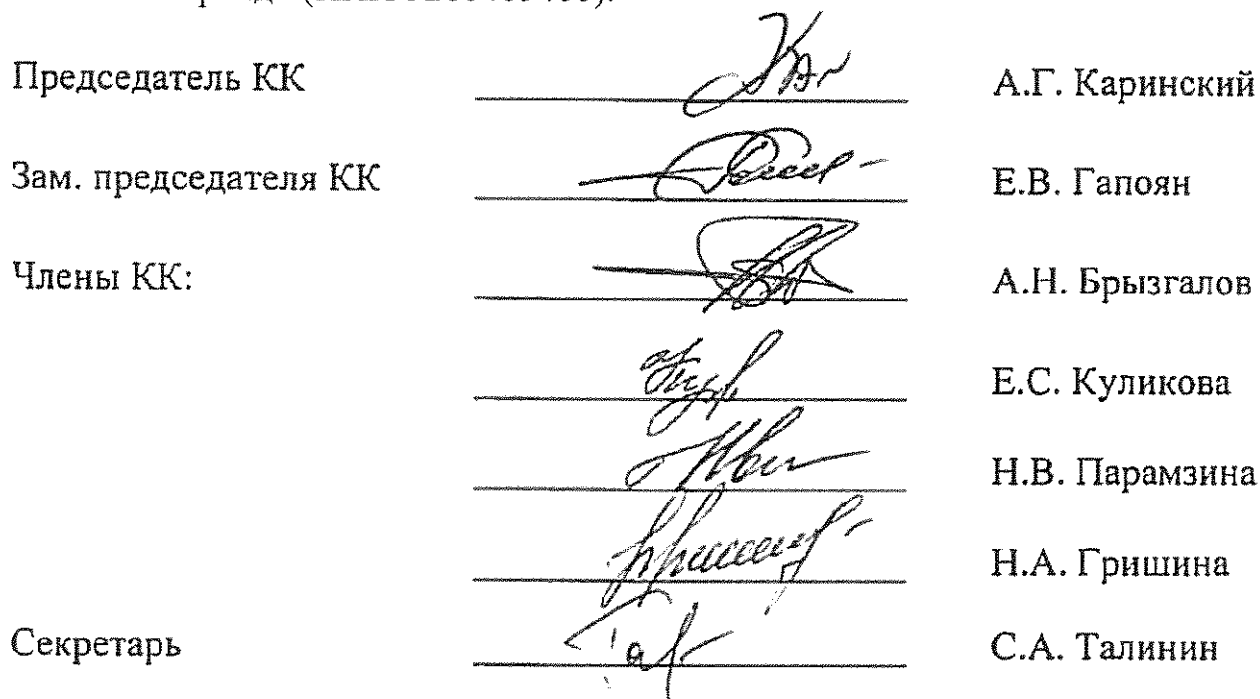 Председатель КК А.Г. Каринский
Зам. председателя КК Е.В. Гапоян
Члены КК: А.Н. Брызгалов
Е.С. Куликова
Н.В. Парамзина
Н.А. Гришина
Секретарь С.А. Талинин